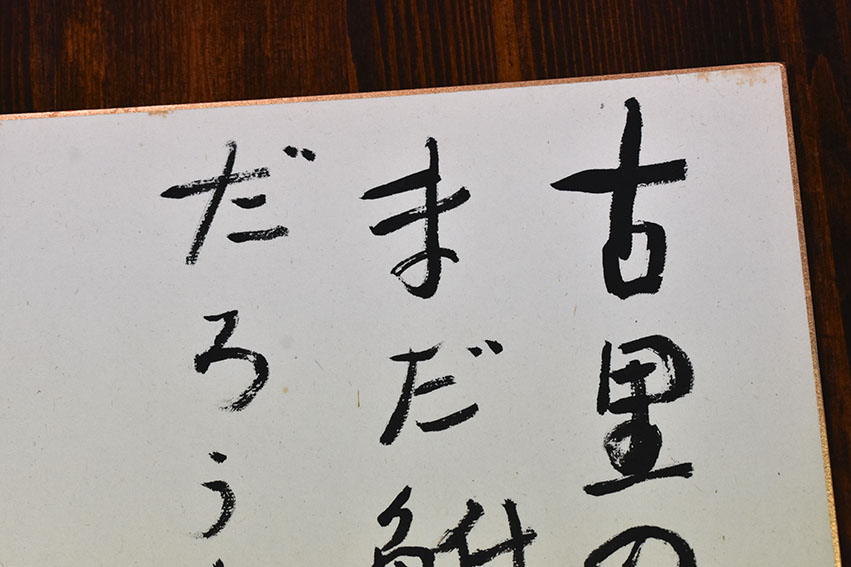 古里の
まだ
だろう